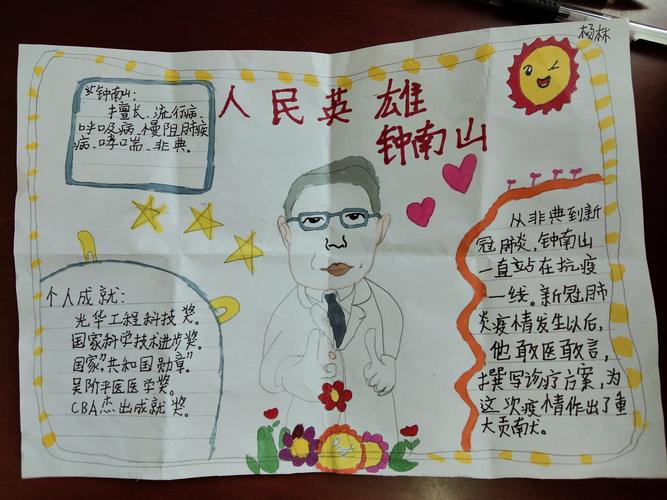 杨林
人民英雄
钟南山
钟南山:
擅长、流行病、
呼吸病、慢阻肺疾
病、哮喘、非典。
个人成就:
光华工程科技奖。
国家科学技术进步奖。
国家“共和国勋章”。
吴阶平医医学奖。
CBA杰出成就奖。
从非典到新
冠肺炎,钟南山
一直站在抗疫
一线。新冠肺
炎疫情发生以后,
他敢医敢言,
撰写诊疗方案,为
这次疫情作出了重
大贡献。